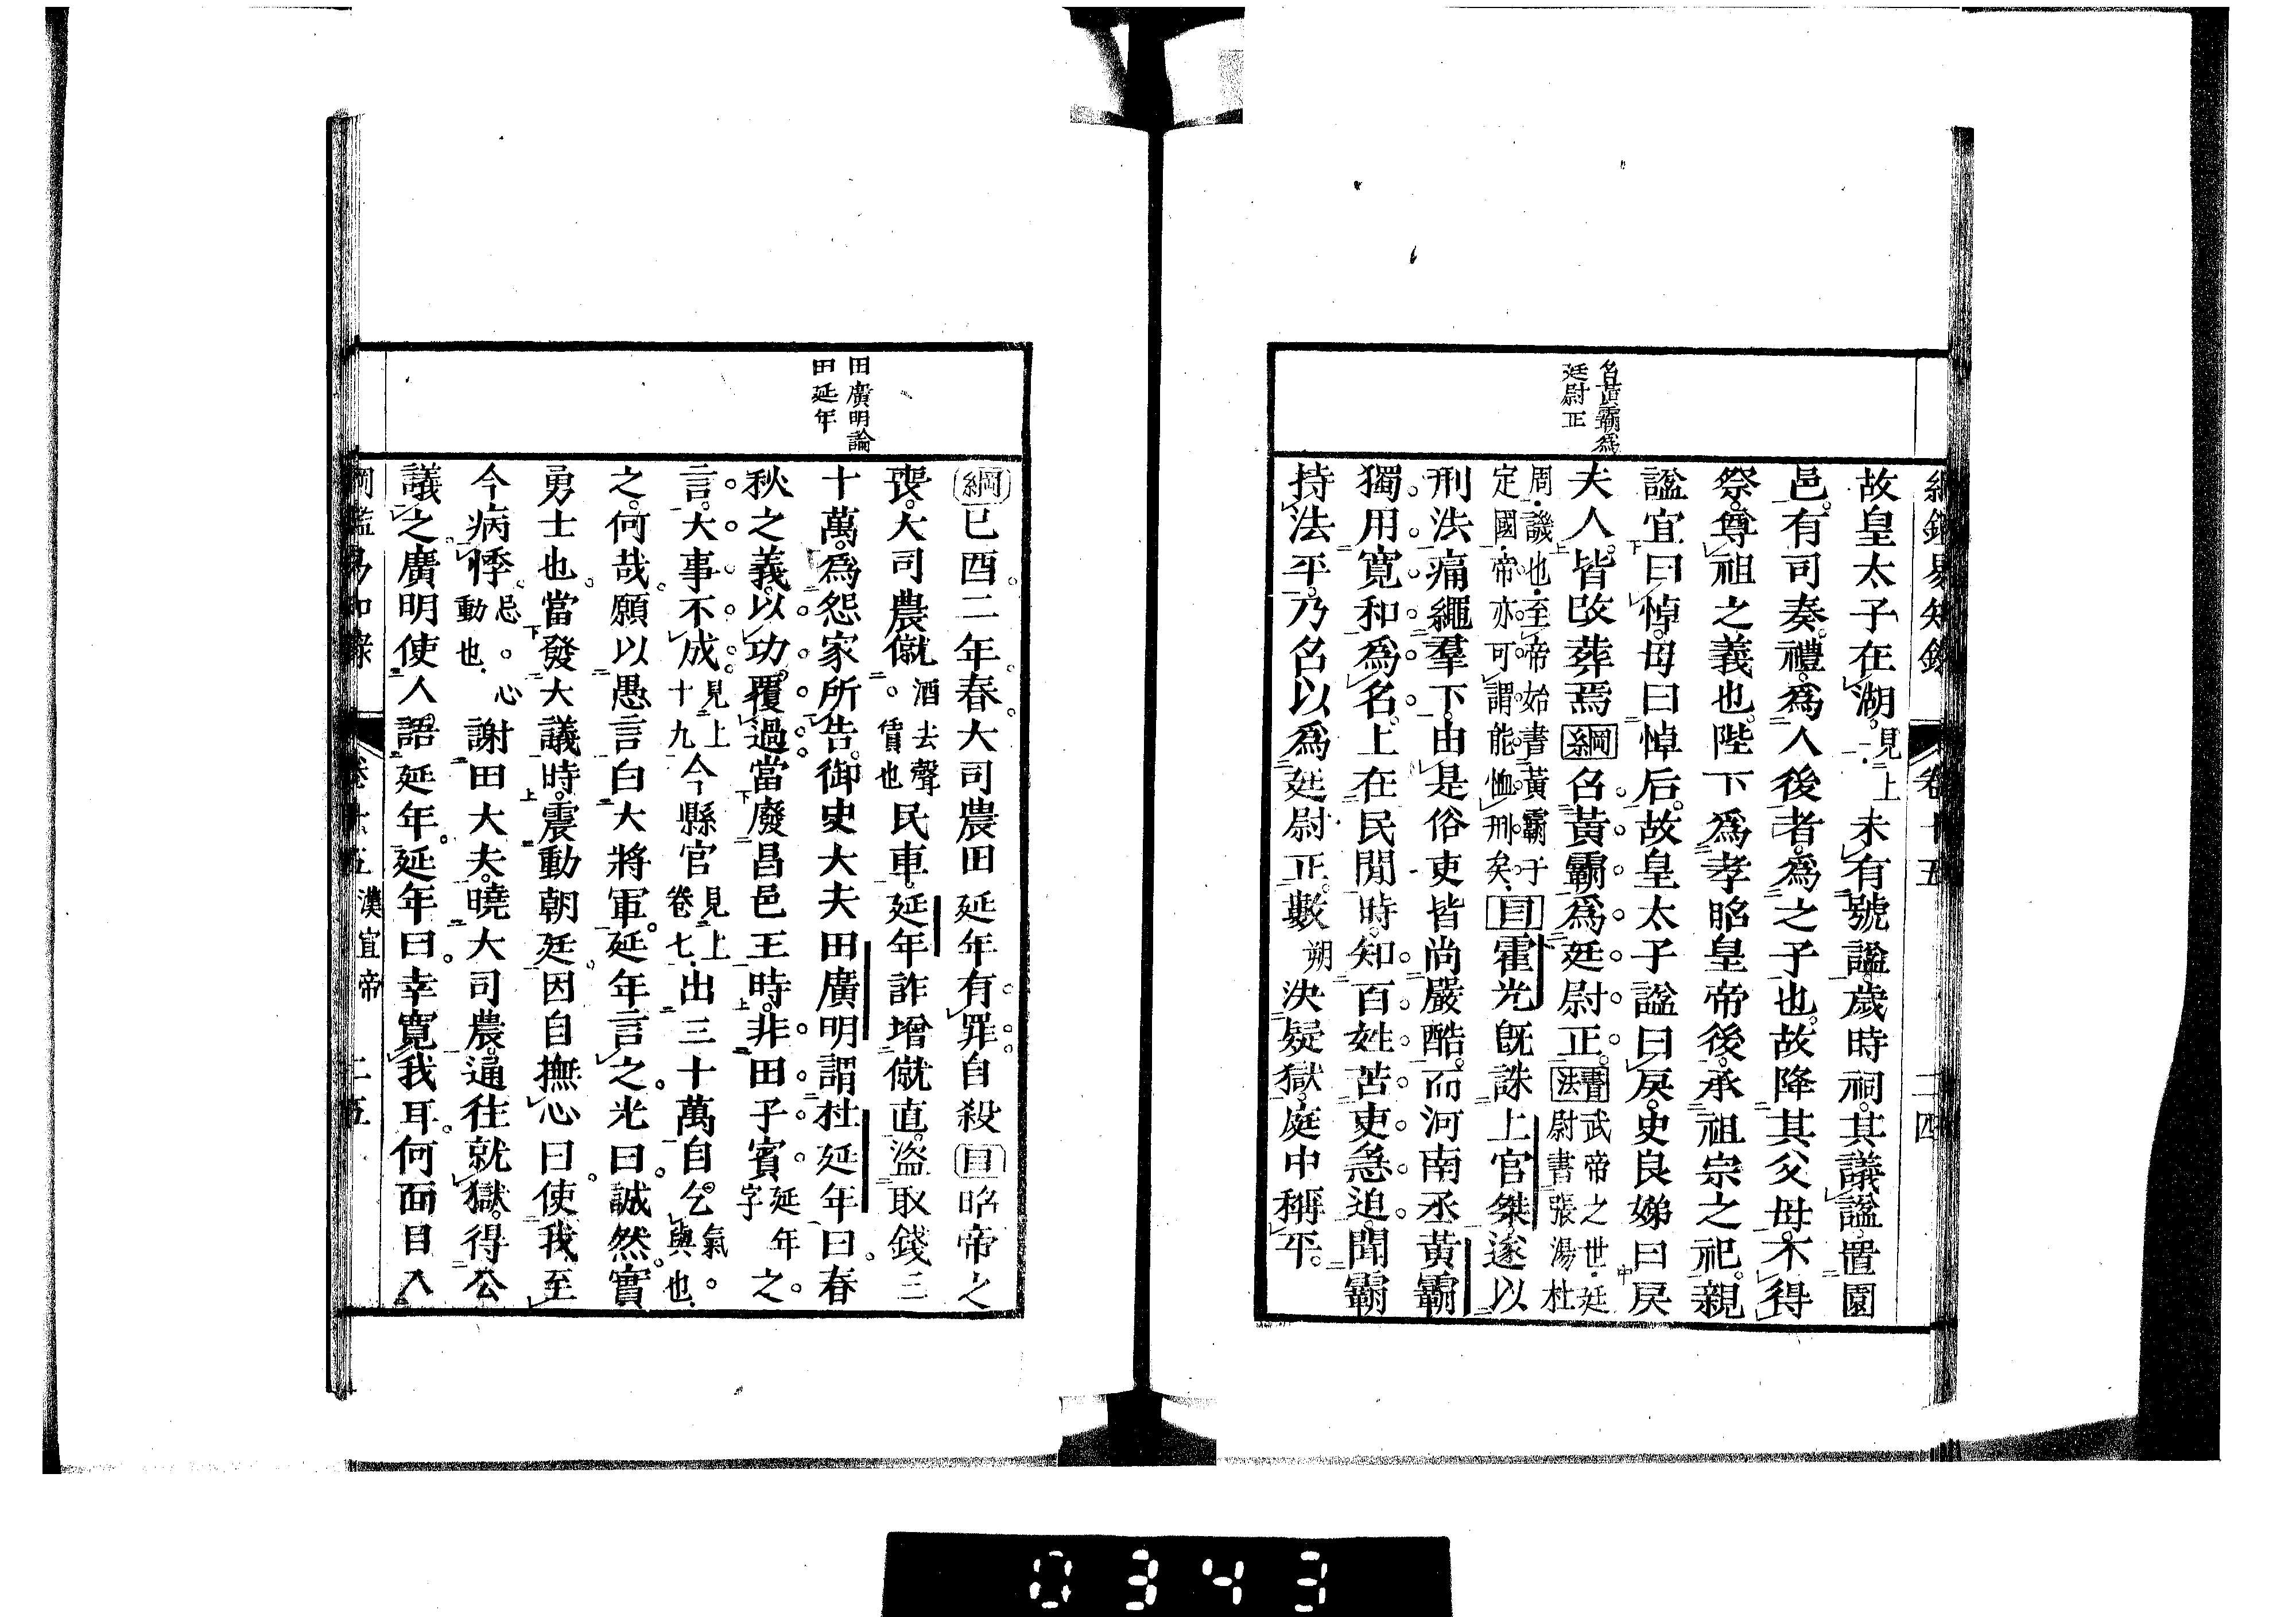 綱鑑易知錄 卷十五 二四
故皇太子在湖見上未有號諡歲時祠其議諡置園
邑有司奏禮爲人後者爲之子也故降其父母不得
祭尊祖之義也陛下爲孝昭皇帝後承祖宗之祀親
諡宜曰悼母曰悼后故皇太子諡曰戾史良娣曰戾
夫人皆改葬焉綱名黃霸爲廷尉正書法武帝之世廷尉書張湯杜
周譏也至帝始書黃霸于定國帝亦可謂能恤刑矣目霍光旣誅上官桀遂以
刑法痛繩羣下由是俗吏皆尚嚴酷而河南丞黃霸
獨用寬和爲名上在民閒時知百姓苦吏急迫聞霸
持法平乃名以爲廷尉正數朔決疑獄庭中稱平
名黃霸爲
廷尉正
綱己酉二年春大司農田延年有罪自殺目昭帝之
喪大司農僦酒去聲賃也民車延年詐增僦直盜取錢三
十萬爲怨家所告御史大夫田廣明謂杜延年曰春
秋之義以功覆過當廢昌邑王時非田子賓延年字之
言大事不成見上十九今縣官見上卷七出三十萬自乞氣與也
之何哉願以愚言白大將軍延年言之光曰誠然實
勇士也當發大議時震動朝廷因自撫心曰使我至
今病悸忌心動也謝田大夫曉大司農逼往就獄得公
議之廣明使人語延年延年曰幸寬我耳何面目入
田廣明論
田延年
綱鑑易知錄 卷十五 漢宣帝 二五
0343